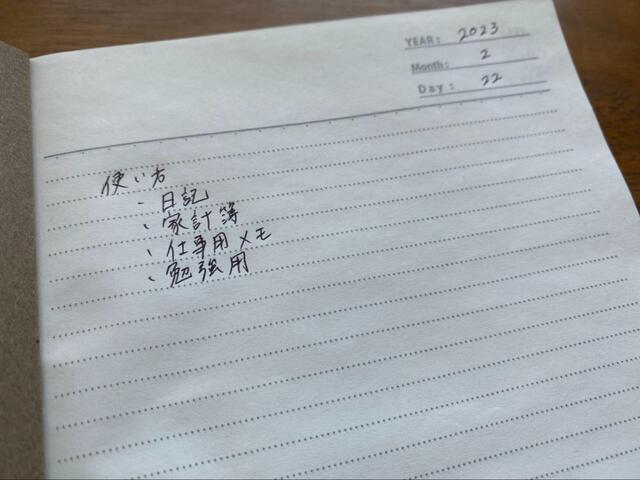 YEAR: 2023
Month: 2
Day: 22
使い方
・日記
・家計簿
・仕事用メモ
・勉強用